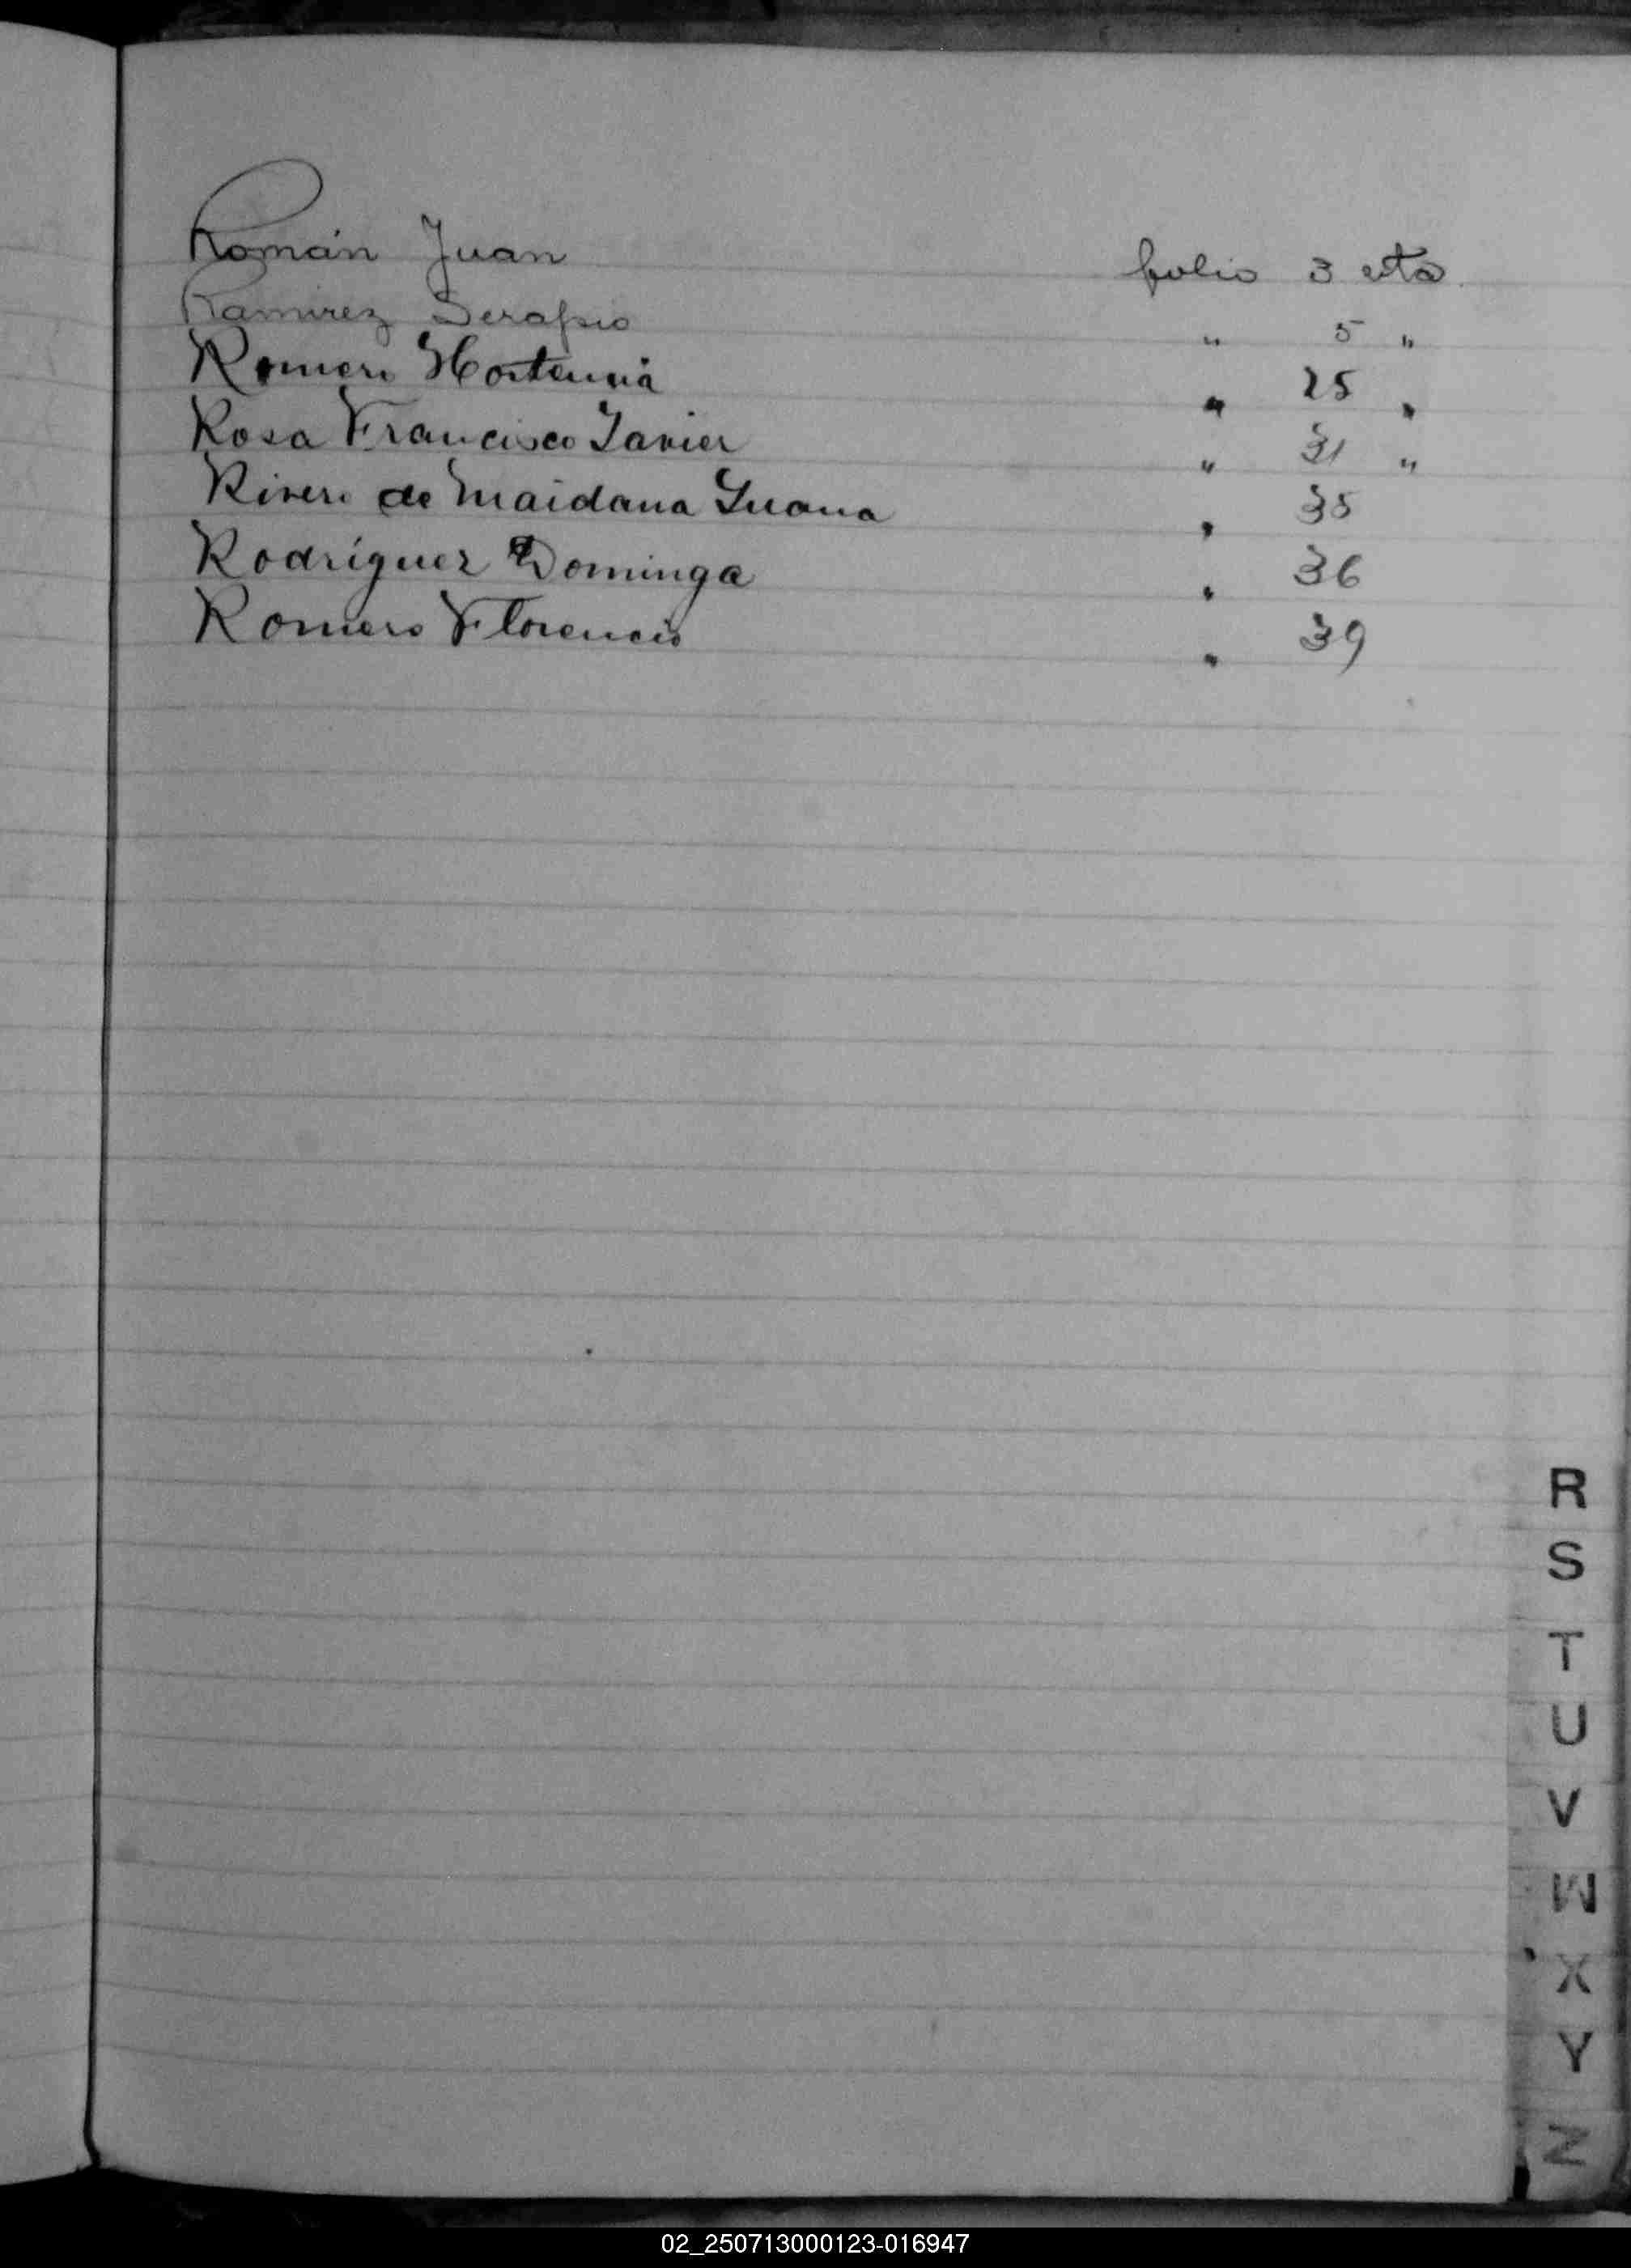 Román Juan folio 3 vta.
Ramirez Serapio " 5 "
Romero Hortensia " 25 "
Rosa Francisco Javier " 31 "
Rivero de Maidana Juana " 35
Rodríguez Dominga " 36
Romero Florencio " 39
R
S
T
U
V
W
X
Y
Z
02_250713000123-016947